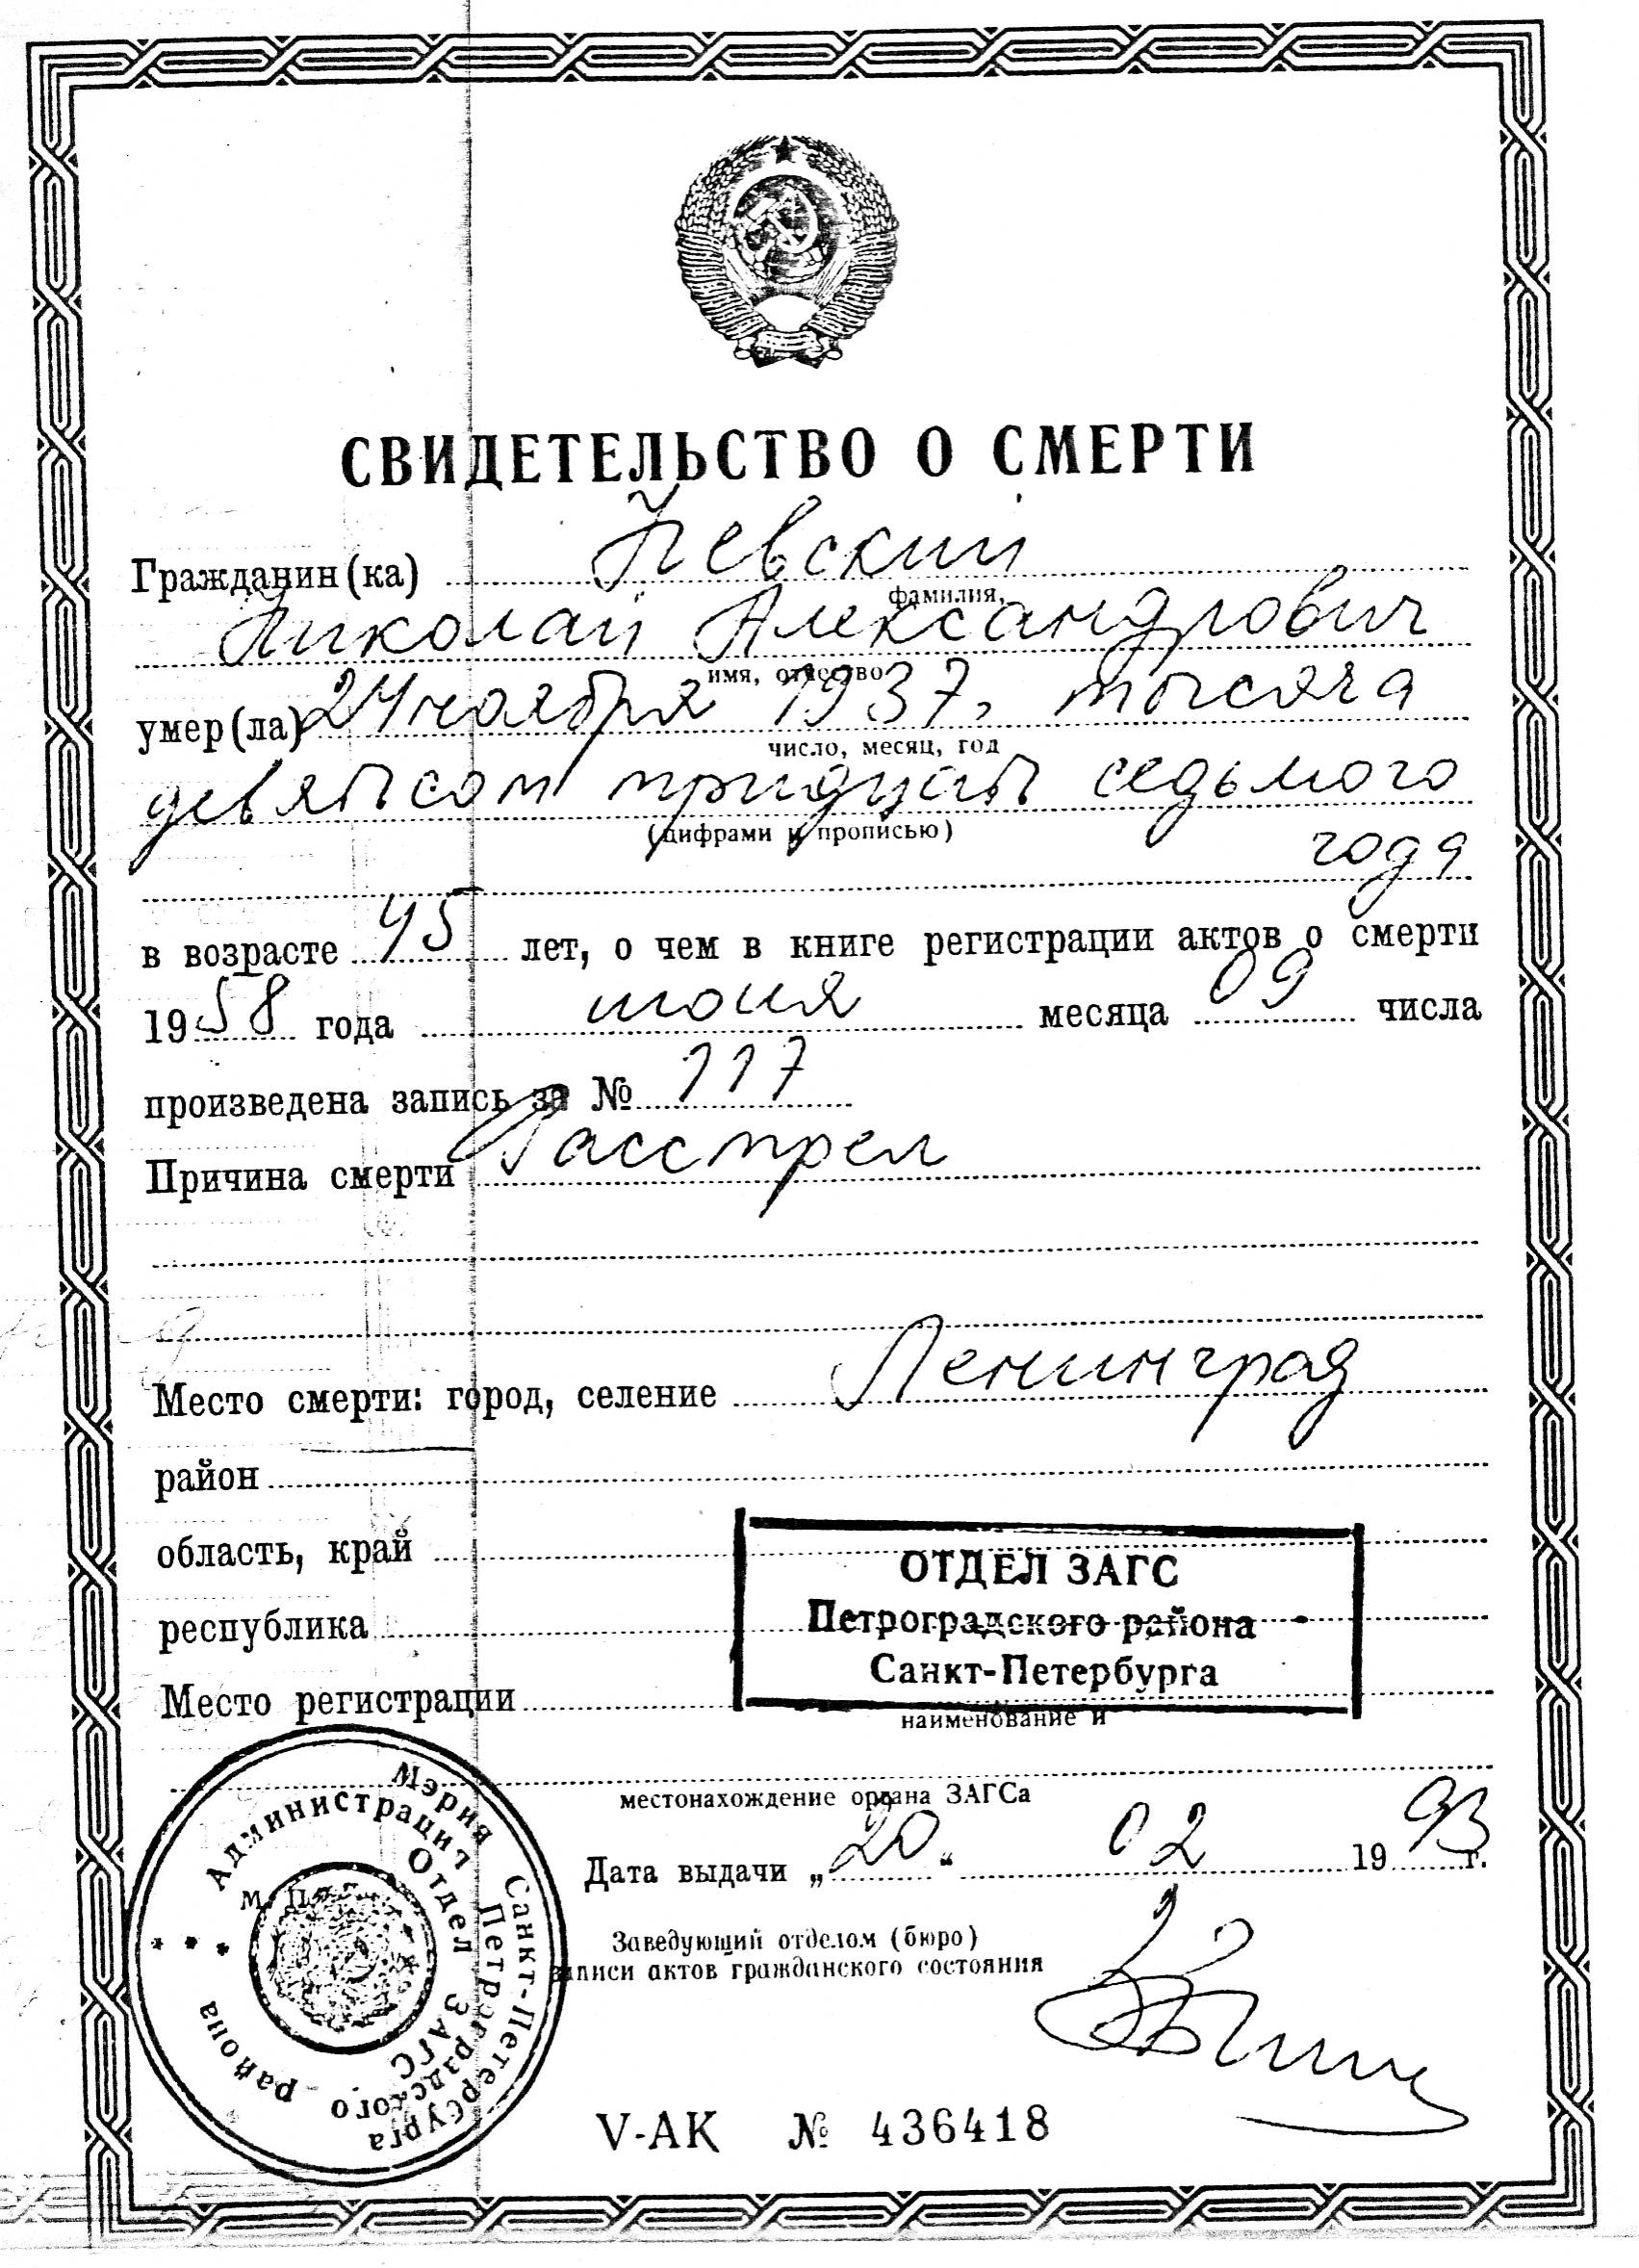 СВИДЕТЕЛЬСТВО О СМЕРТИ
Гражданин(ка) Невский
фамилия,
Николай Александрович
имя, отчество
умер(ла) 24 ноября 1937, тысяча
число, месяц, год
девятьсот тридцать седьмого
(цифрами и прописью)
года
в возрасте 45 лет, о чем в книге регистрации актов о смерти
1958 года июня месяца 09 числа
произведена запись за № 117
Причина смерти Расстрел
Место смерти: город, селение Ленинград
район
область, край
республика
ОТДЕЛ ЗАГС
Петроградского района
Санкт-Петербурга
Место регистрации
наименование и
местонахождение органа ЗАГСа
Дата выдачи „20“ 02 1993 г.
М. П.
Заведующий отделом (бюро)
записи актов гражданского состояния
Мэрия Санкт-Петербурга
Администрация Петроградского района
Отдел ЗАГС
V-АК № 436418